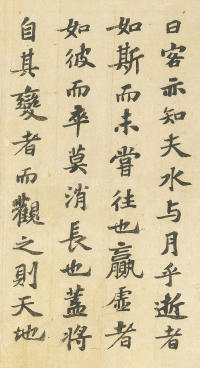 曰客亦知夫水与月乎逝者
如斯而未嘗往也贏虚者
如彼而卒莫消長也蓋将
自其變者而觀之則天地